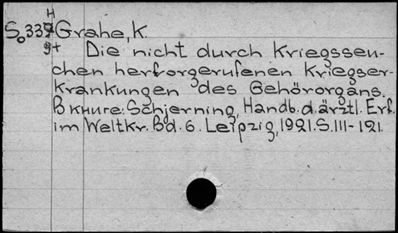 H
So 337 Grahe, K.
9+ Die nicht durch Kriegsseu-
chen herforgerufenen Kriegser-
krankungen des Gehörorgans.
В книге: Schjerning, Handb. d. ärztl. Erf.
im Weltkr. Bd. 6. Leipzig, 1921. S. 111-121.